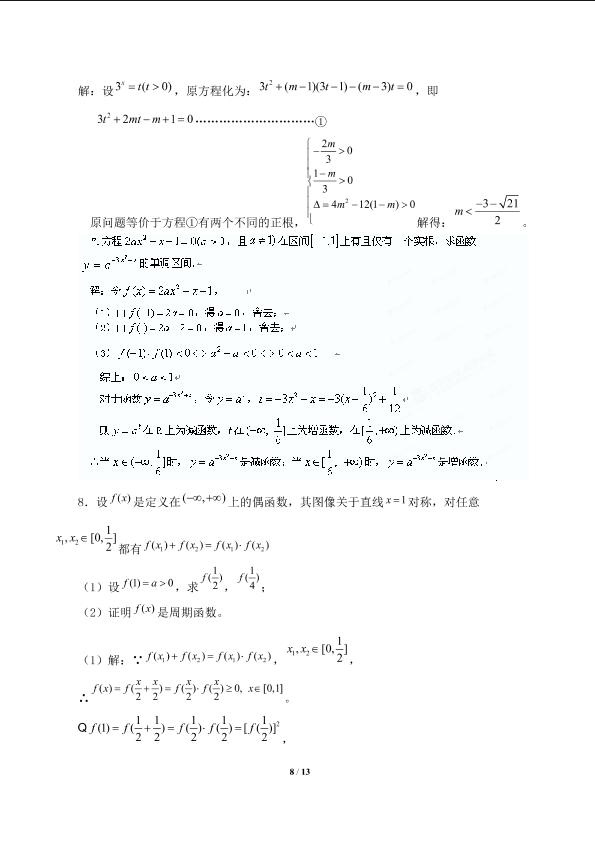 解：设 3^x = t(t > 0)，原方程化为：3t² + (m−1)(3t−1) − (m−3)t = 0，即
3t² + 2mt − m + 1 = 0 ·······························①
−2m/3 > 0
1−m/3 > 0
Δ = 4m² − 12(1−m) > 0
原问题等价于方程①有两个不同的正根， 解得： m < (−3 − √21)/2 。
方程 2ax² − x − 1 = 0(a > 0，且 a ≠ 1) 在区间[−1,1]上有且仅有一个实根，求函数
y = a^(−3x²−x) 的单调区间.
解：令 f(x) = 2ax² − x − 1，
(3) f(−1)·f(1) < 0 <> a² − a < 0 <> 0 < a < 1
综上：0 < a < 1
对于函数 y = a^(−3x²+x)，令 y = a^t，t = −3x² − x = −3(x − 1/6)² + 1/12
则 y = a^t 在 R 上为减函数，t 在(−∞, 1/6]上为增函数，在[1/6, +∞)上为减函数.
∴当 x∈(−∞, 1/6]时，y = a^(−3x²+x) 是减函数；当 x∈[1/6, +∞)时，y = a^(−3x²+x) 是增函数.
8．设 f(x) 是定义在 (−∞,+∞) 上的偶函数，其图像关于直线 x = 1 对称，对任意
x₁, x₂ ∈ [0, 1/2] 都有 f(x₁) + f(x₂) = f(x₁)· f(x₂)
（1）设 f(1) = a > 0，求 f(1/2)， f(1/4)；
（2）证明 f(x) 是周期函数。
（1）解：∵ f(x₁) + f(x₂) = f(x₁)· f(x₂)， x₁, x₂ ∈ [0, 1/2]，
∴ f(x) = f(x/2 + x/2) = f(x/2)· f(x/2) ≥ 0, x ∈ [0,1] 。
Q f(1) = f(1/2 + 1/2) = f(1/2)· f(1/2) = [f(1/2)]²，
8 / 13